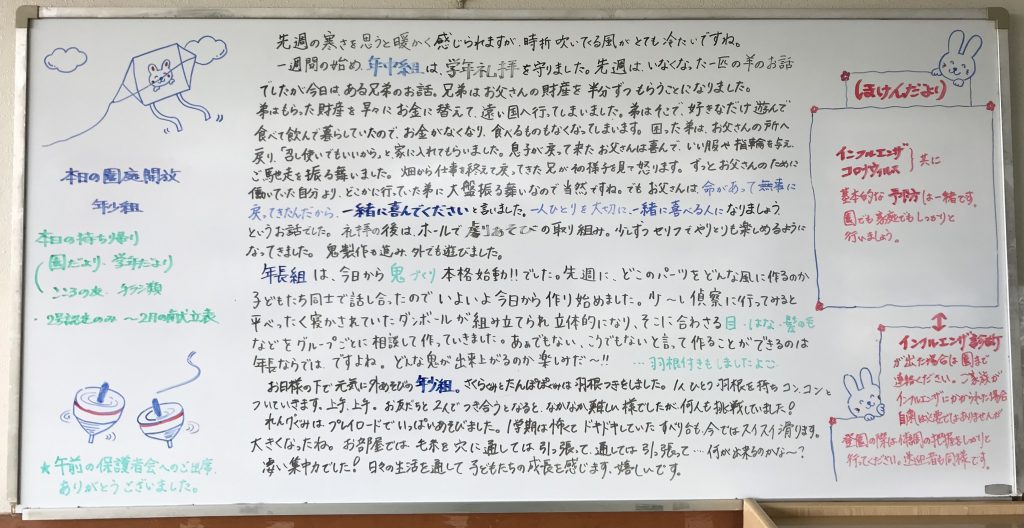 本日の園庭開放
年少組
本日の持ち帰り
園だより・学年だより
こころの友・チラシ類
・2号認定のみ 〜2月の献立表
★午前の保護者会へのご出席、
ありがとうございました。
先週の寒さを思うと暖かく感じられますが、時折吹いてる風がとても冷たいですね。
一週間の始め、年中組は、学年礼拝を守りました。先週は、いなくなった一匹の羊のお話
でしたが、今日は、ある兄弟のお話。兄弟はお父さんの財産を半分ずつもらうことになりました。
弟はもらった財産を早々にお金に替えて、遠い国へ行ってしまいました。弟はそこで、好きなだけ遊んで
食べて飲んで暮らしていたので、お金がなくなり、食べるものもなくなってしまいます。困った弟は、お父さんの所へ
戻り、「召し使いでもいいから」と家に入れてもらいました。息子が戻って来たお父さんは喜んで、いい服や指輪を与え、
ご馳走を振る舞いました。畑から仕事を終えて戻ってきた兄がその様子を見て怒ります。ずっとお父さんのために
働いていた自分より、どこかに行っていた弟に大盤振る舞いなので当然ですね。でもお父さんは、命があって無事に
戻ってきたんだから、一緒に喜んでくださいと言いました。一人ひとりを大切に、一緒に喜べる人になりましょう
というお話でした。礼拝の後は、ホールで劇あそびの取り組み。少しずつセリフでやりとりも楽しめるように
なってきました。鬼製作も進み、外でも遊びました。
年長組は、今日から鬼づくり本格始動!!でした。先週に、どこのパーツをどんな風に作るのか
子どもたち同士で話し合ったのでいよいよ今日から作り始めました。少〜し偵察に行ってみると
平べったく寝かされていたダンボールが組み立てられ立体的になり、そこに合わさる目・はな・髪の毛
などをグループごとに相談して作っていきました。あぁでもない、こうでもないと言って作ることができるのは
年長ならでは、ですよね。どんな鬼が出来上がるのか楽しみだ〜!! …羽根付きもしましたよ
お日様の下で元気に外あそびの年少組。さくらぐみとたんぽぽぐみは羽根つきをしました。1人ひとつ羽根を持ちコン、コンと
ついていきます。上手、上手。お友だちと2人でつき合うとなると、なかなか難しい様でしたが、何人も挑戦していました!
れんげぐみはプレイロードでいっぱいあそびました。1学期は怖くてドキドキしていたすべり台も、今ではスイスイ滑ります。
大きくなったね。お部屋では、毛糸を穴に通しては引っ張って、通しては引っ張って…何が出来るのかな〜?
凄い集中力でした!日々の生活を通して子どもたちの成長を感じます。嬉しいです。
ほけんだより
インフルエンザ
コロナウィルス 共に
基本的な予防方は一緒です。
園でも家庭でもしっかりと
行いましょう。
インフルエンザ
が出た場合は園まで
連絡ください。ご家族が
インフルエンザにかかられた場合
自粛は必要ではありませんが
登園の際は体調の把握をしっかりと
行ってください。送迎者も同様です。